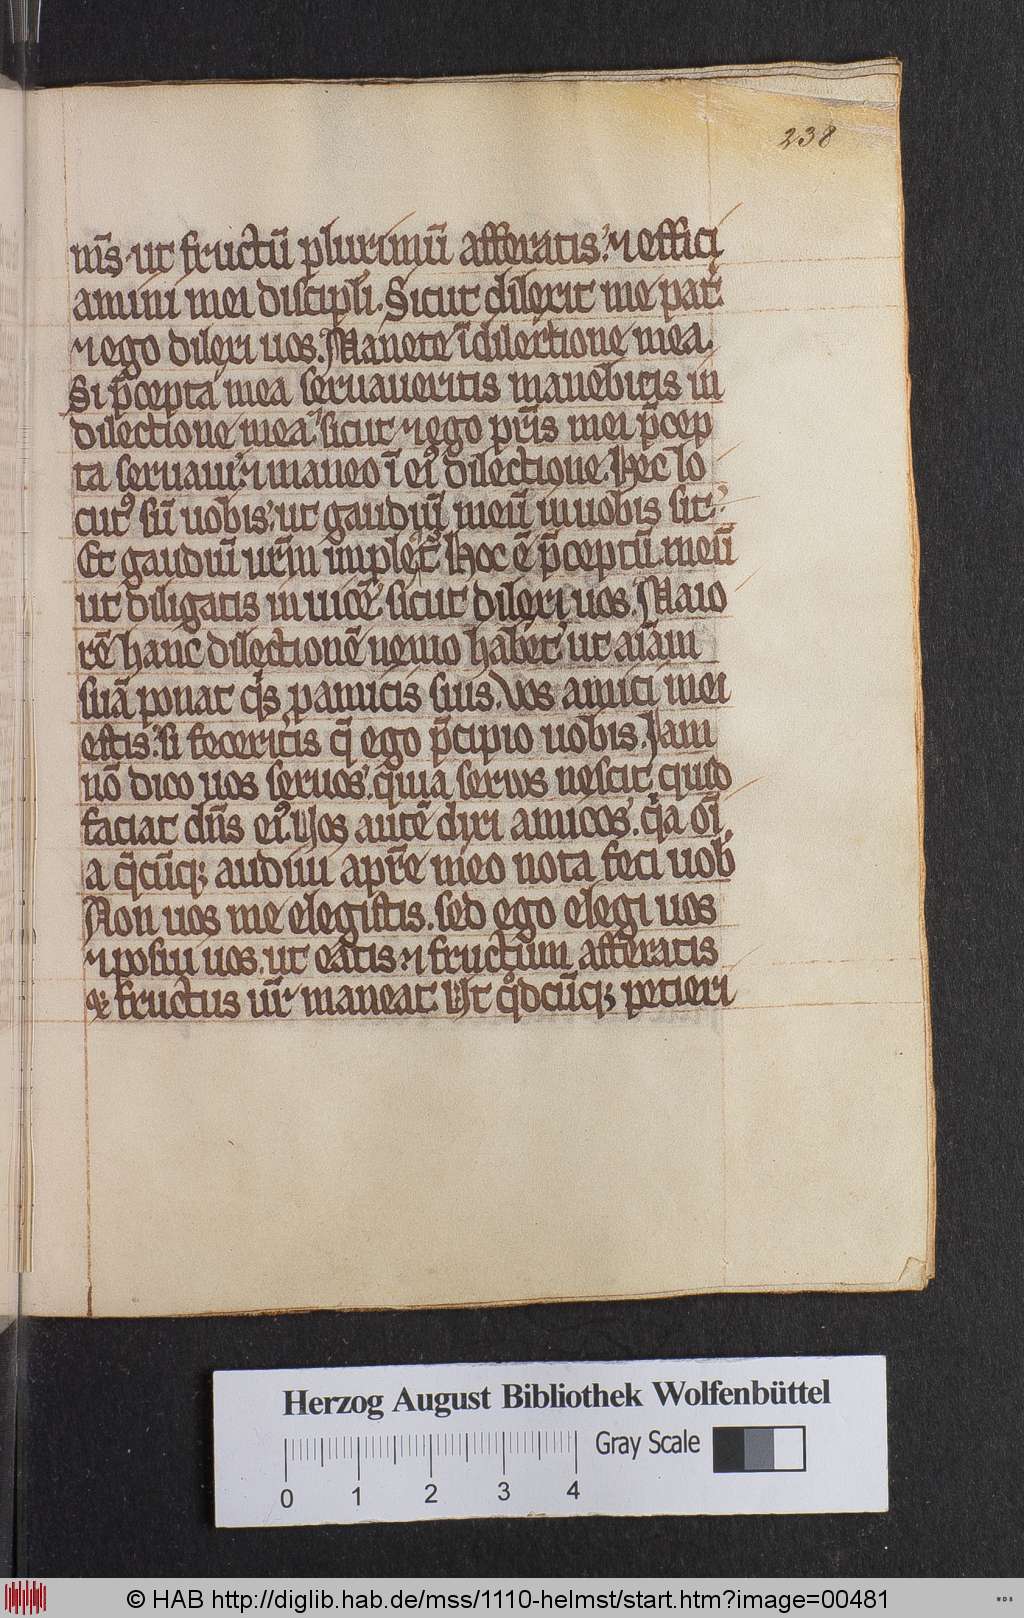 238
m̄s ut fructū plurimū afferatis. ⁊ effici
amini mei discipli. Sicut dilexit me pat̄.
⁊ ego dilexi uos. Manete ī dilectione mea.
Si p̄cepta mea seruaueritis manebitis in
dilectione mea. sicut ⁊ ego pr̄is mei p̄cep
ta seruaui. ⁊ maneo ī eiꝰ dilectione. Hec lo
cutꝰ sū uobis. ut gaudiū meū in uobis sit.
Et gaudiū ur̄m impleat̄. Hoc ē p̄ceptū meū
ut diligatis inuicē sicut dilexi uos. Maio
rē hanc dilectionē nemo habet. ut aīam
suā ponat q̄s p amicis suis. Vos amici mei
estis. si feceritis q̄ ego p̄cipio uobis. Jam
nō dico uos seruos. quia seruus nescit quid
faciat dn̄s eiꝰ. Uos autē dixi amicos. q̄a om̄i
a q̄cūq; audiui a pr̄e meo nota feci uob
Non uos me elegistis. sed ego elegi uos
⁊ posui uos. ut eatis ⁊ fructum afferatis
⁊ fructus ur̄ maneat. Ut qͦdcūq; petieri
Herzog August Bibliothek Wolfenbüttel
Gray Scale
0 1 2 3 4
© HAB http://diglib.hab.de/mss/1110-helmst/start.htm?image=00481